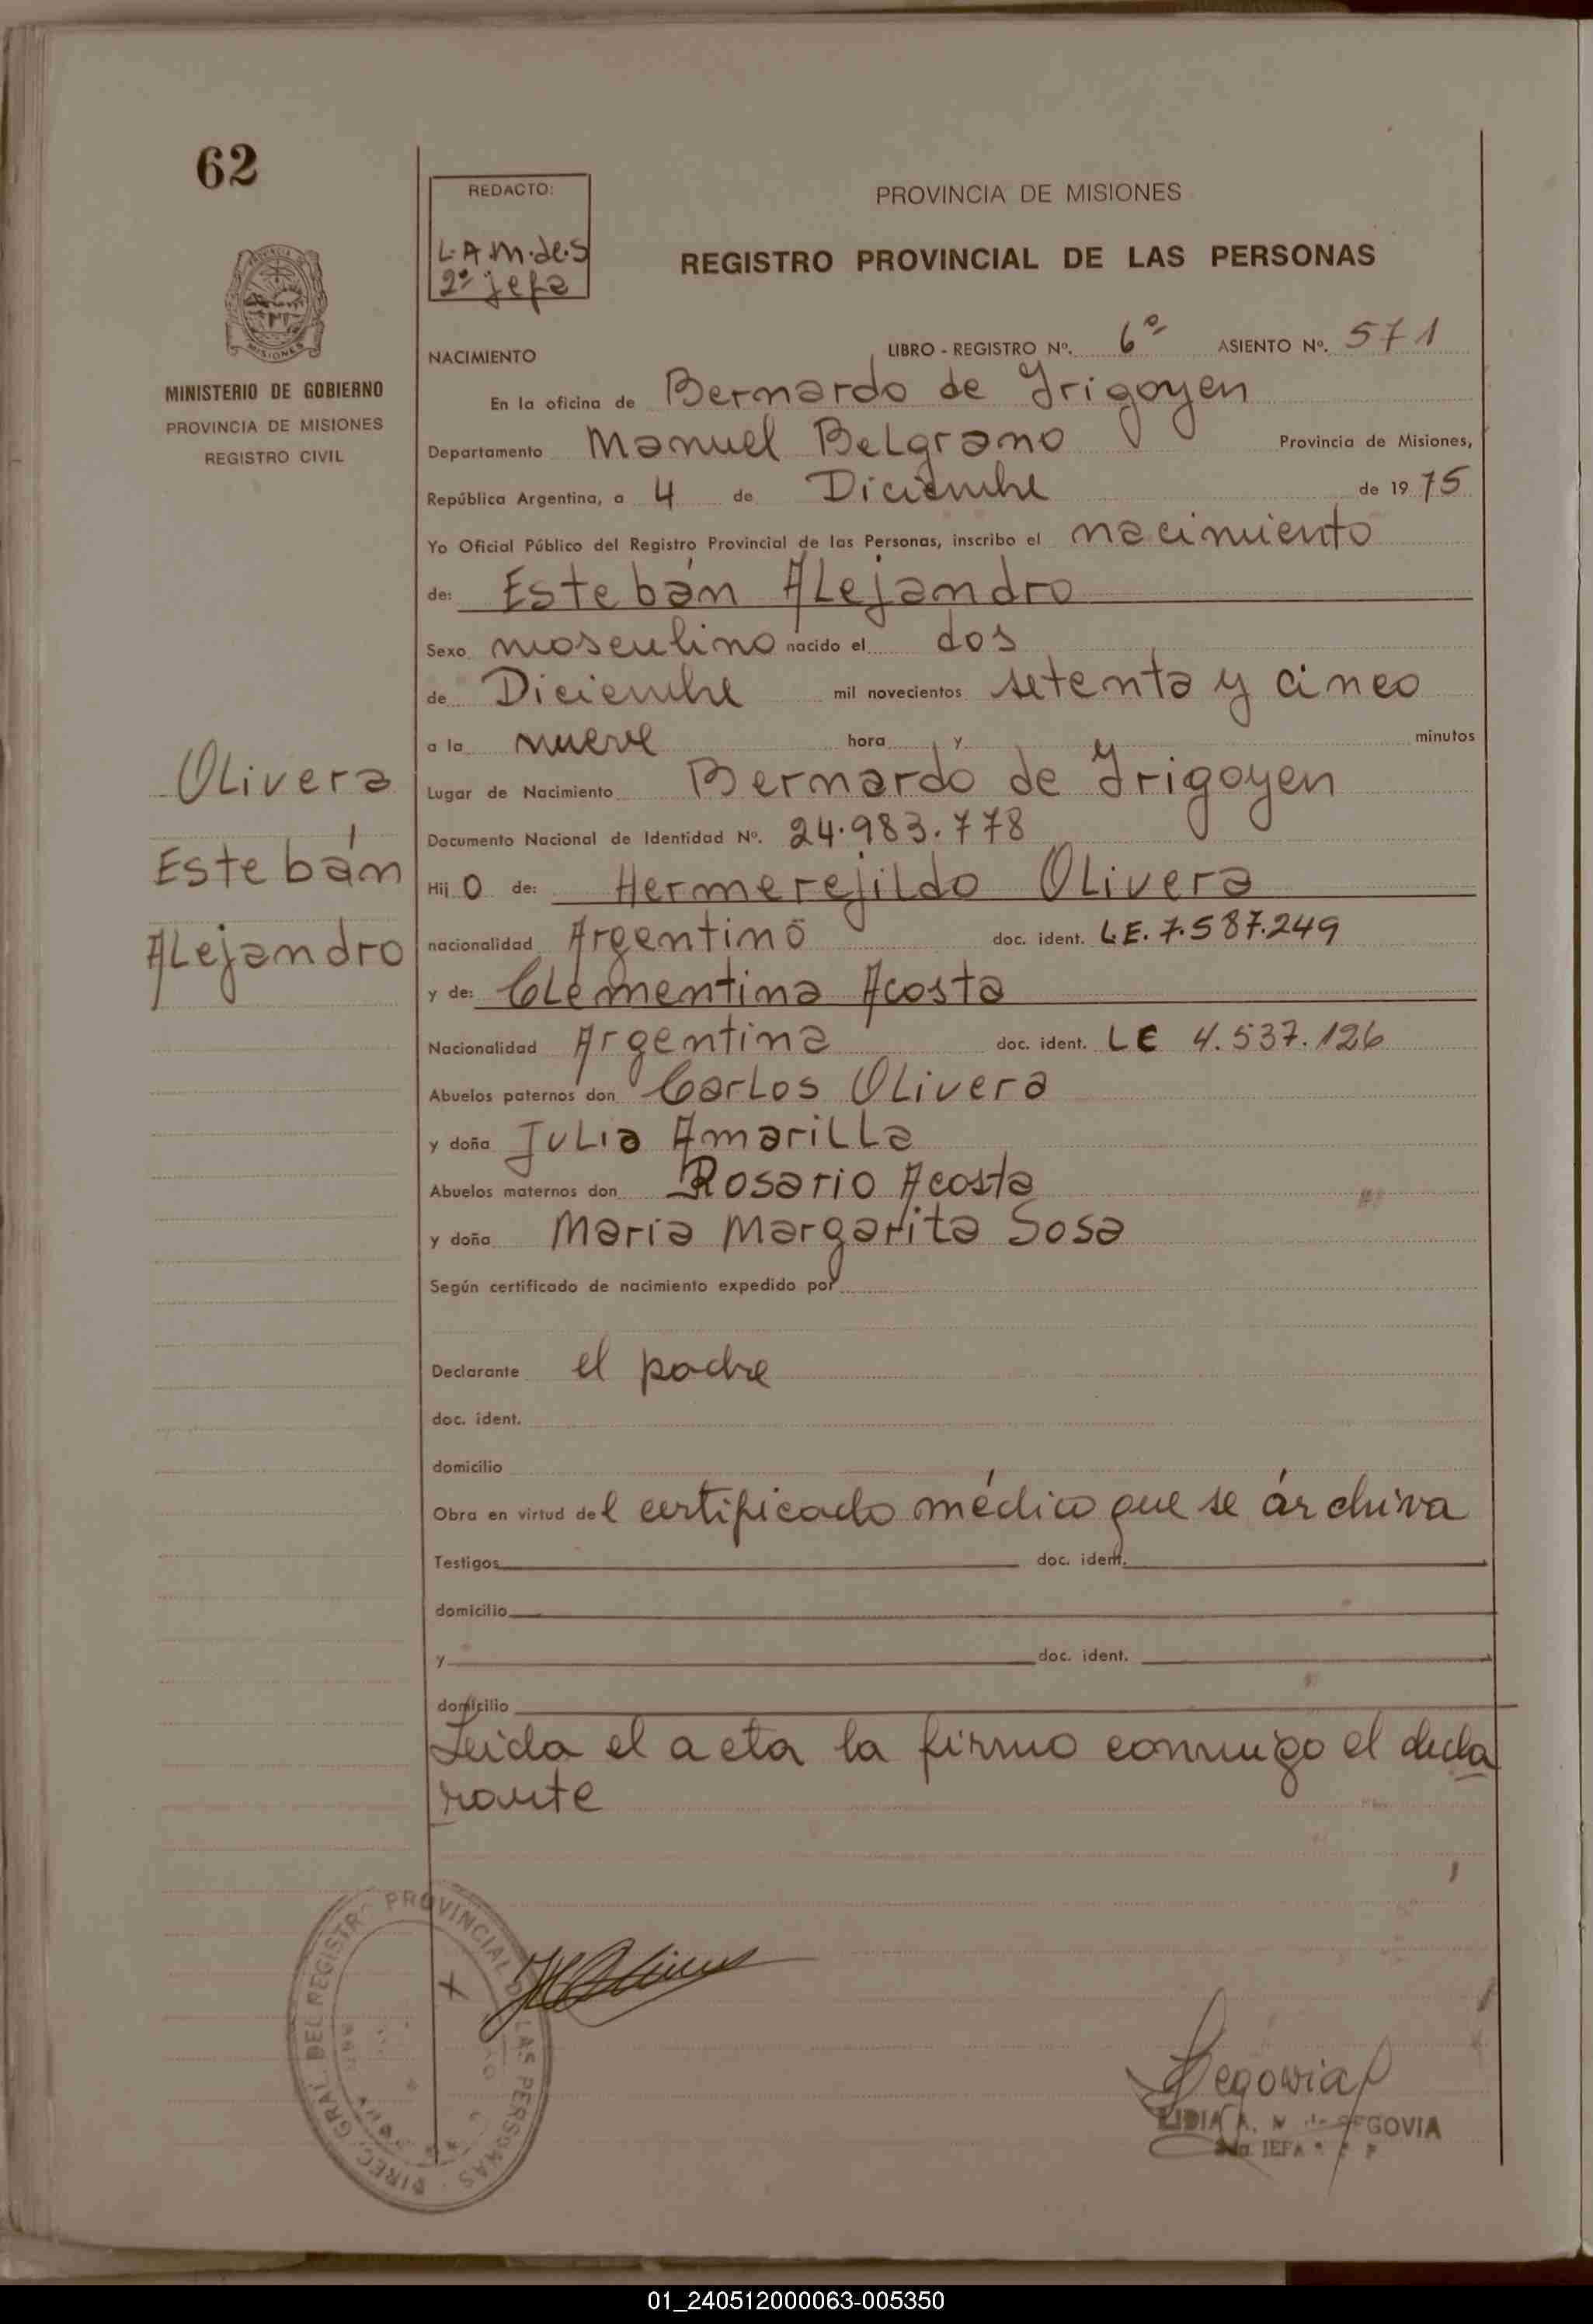 62
REDACTO:
L.A.M.de.S
2º jefa
PROVINCIA DE MISIONES
REGISTRO PROVINCIAL DE LAS PERSONAS
MISIONES
MINISTERIO DE GOBIERNO
PROVINCIA DE MISIONES
REGISTRO CIVIL
NACIMIENTO LIBRO - REGISTRO Nº. 6º ASIENTO Nº. 571
En la oficina de Bernardo de Irigoyen
Departamento Manuel Belgrano Provincia de Misiones,
República Argentina, a 4 de Diciembre de 1975
Yo Oficial Público del Registro Provincial de las Personas, inscribo el nacimiento
de: Estebán Alejandro
Sexo masculino nacido el dos
de Diciembre mil novecientos setenta y cinco
a la nueve hora y minutos
Olivera
Estebán
Alejandro
Lugar de Nacimiento Bernardo de Irigoyen
Documento Nacional de Identidad Nº. 24.983.778
Hij o de: Hermerejildo Olivera
nacionalidad Argentino doc. ident. L.E. 7.587.249
y de: Clementina Acosta
Nacionalidad Argentina doc. ident. LE 4.537.126
Abuelos paternos don Carlos Olivera
y doña Julia Amarilla
Abuelos maternos don Rosario Acosta
y doña Maria Margarita Sosa
Según certificado de nacimiento expedido por
Declarante el padre
doc. ident.
domicilio
Obra en virtud del certificado médico que se árchiva
Testigos doc. ident.
domicilio
y doc. ident.
domicilio
Leida el acta la firmo conmigo el decla
rante
DIREC. GRAL. DEL REGISTRO PROVINCIAL DE LAS PERSONAS
X
Segovia
LIDIA A. M. de SEGOVIA
2da. JEFA
01_240512000063-005350